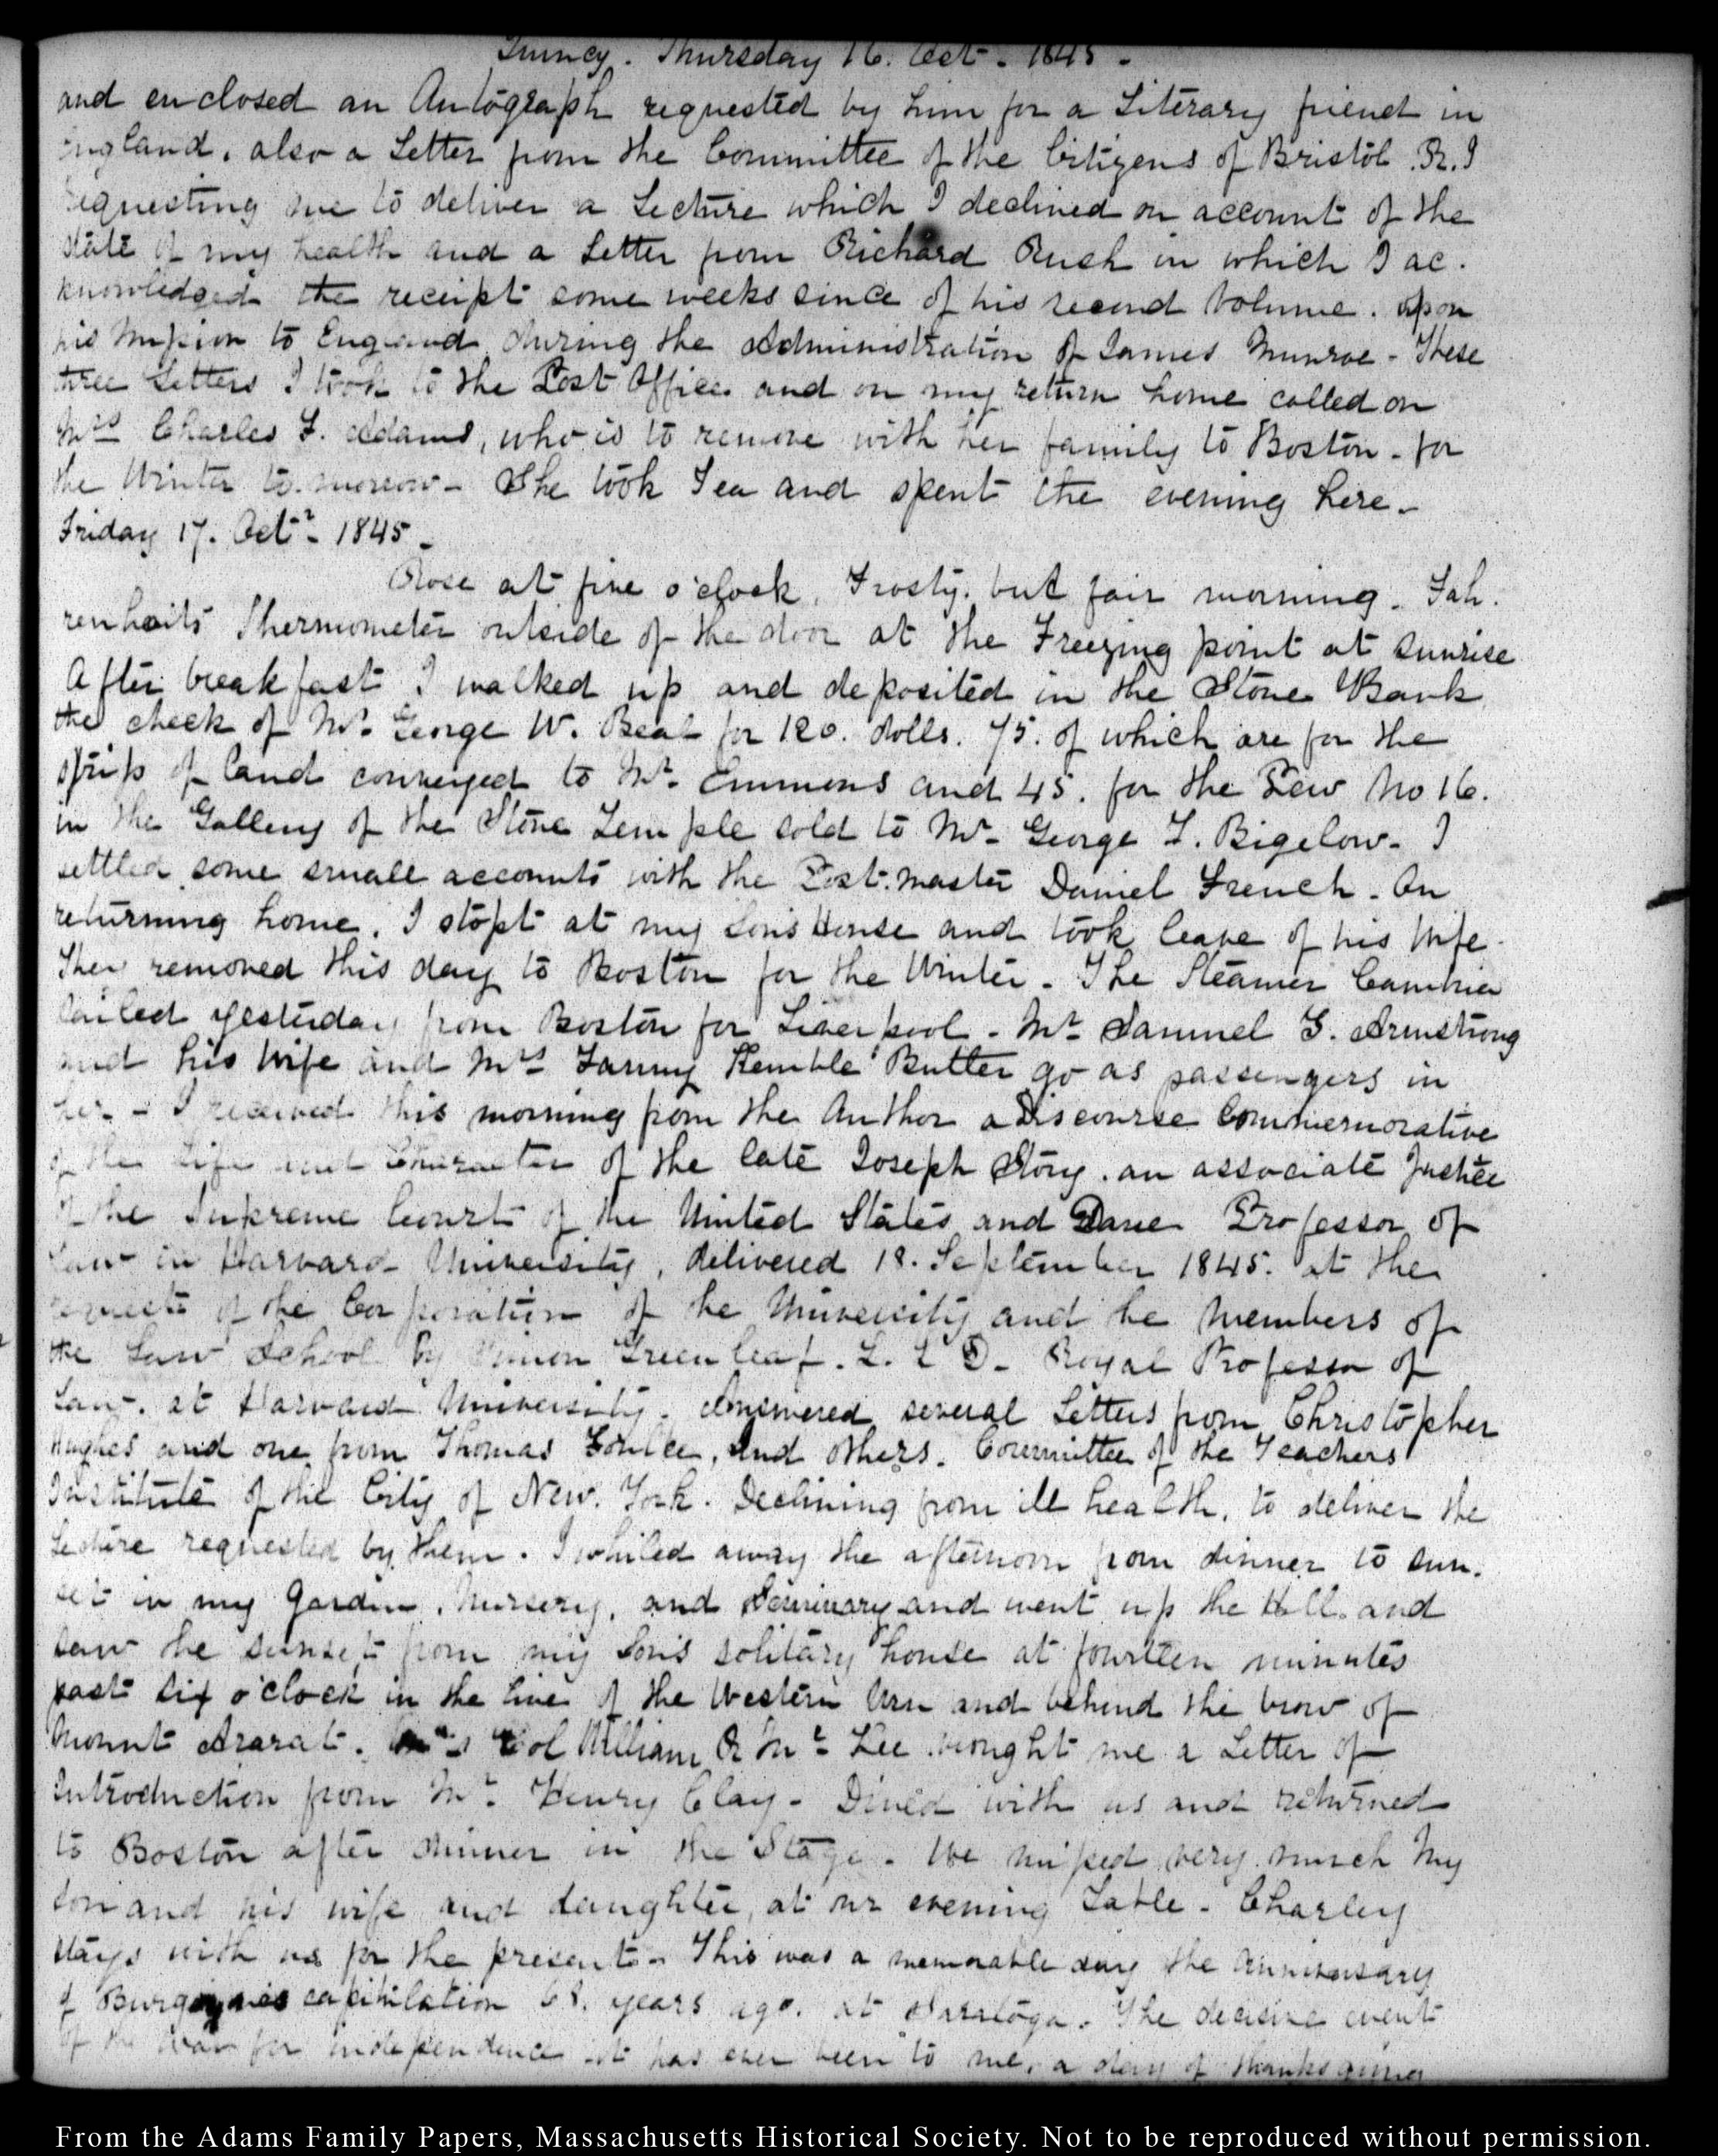 Quincy. Thursday 16. Oct - 1845 -
and enclosed an Autograph requested by him for a Literary friend in
England, also a Letter from the Committee of the Citizens of Bristol R. I
requesting me to deliver a Lecture which I declined on account of the
state of my health and a Letter from Richard Rush in which I ac-
knowledged the receipt some weeks since of his second Volume. upon
his Mission to England during the Administration of James Munroe - These
three Letters I took to the Post Office and on my return home called on
Mrs Charles F. Adams, who is to remove with her family to Boston - for
the Winter to-morrow - She took Tea and spent the evening here -
Friday 17. Octr - 1845 -
Rose at five o'clock. Frosty. but fair morning. Fah-
renheits Thermometer outside of the door at the Freezing point at sunrise
After breakfast I walked up and deposited in the Stone Bank
the check of Mr. George W. Beal for 120. dolls. 75. of which are for the
strip of land conveyed to Mr. Emmons and 45. for the Pew No 16.
in the Gallery of the Stone Temple sold to Mr - George T. Bigelow - I
settled some small accounts with the Post-master Daniel French - On
returning home, I stopt at my sons House and took leave of his Wife -
They removed this day to Boston for the Winter - The Steamer Cambria
sailed yesterday from Boston for Liverpool - Mr Samuel T. Armstrong
and his Wife and Mrs Fanny Kemble Butler go as passengers in
her - I received this morning from the Author a Discourse Commemorative
of the Life and Character of the late Joseph Story. an associate Justice
of the Supreme Court of the United States and Dane Professor of
Law in Harvard University, delivered 18. September 1845. at the
request of the Corporation of the University and the Members of
the Law School by Simon Greenleaf. L. L D - Royal Professor of
Law. at Harvard University. Answered several Letters from Christopher
Hughes and one from Thomas and others. Committee of the Teachers
Institute of the City of New. York. Declining from ill health, to deliver the
Lecture requested by them. I whiled away the afternoon from dinner to sun-
set in my Garden, Nursery, and Seminary and went up the Hill and
saw the sunset from my Sons solitary house at fourteen minutes
past six o'clock in the line of the Western Urn and behind the brow of
Mount Ararat. Col William Lee brought me a Letter of
Introduction from Mr. Henry Clay - Dined with us and returned
to Boston after dinner in the Stage - We missed very much My
son and his wife and daughter, at our evening Table - Charley
stays with us for the present - This was a memorable day the Anniversary
of Burgoynes capitulation 68. years ago. at Saratoga. The decisive event
of the War for independence it has ever been to me, a day of thanksgiving
From the Adams Family Papers, Massachusetts Historical Society. Not to be reproduced without permission.